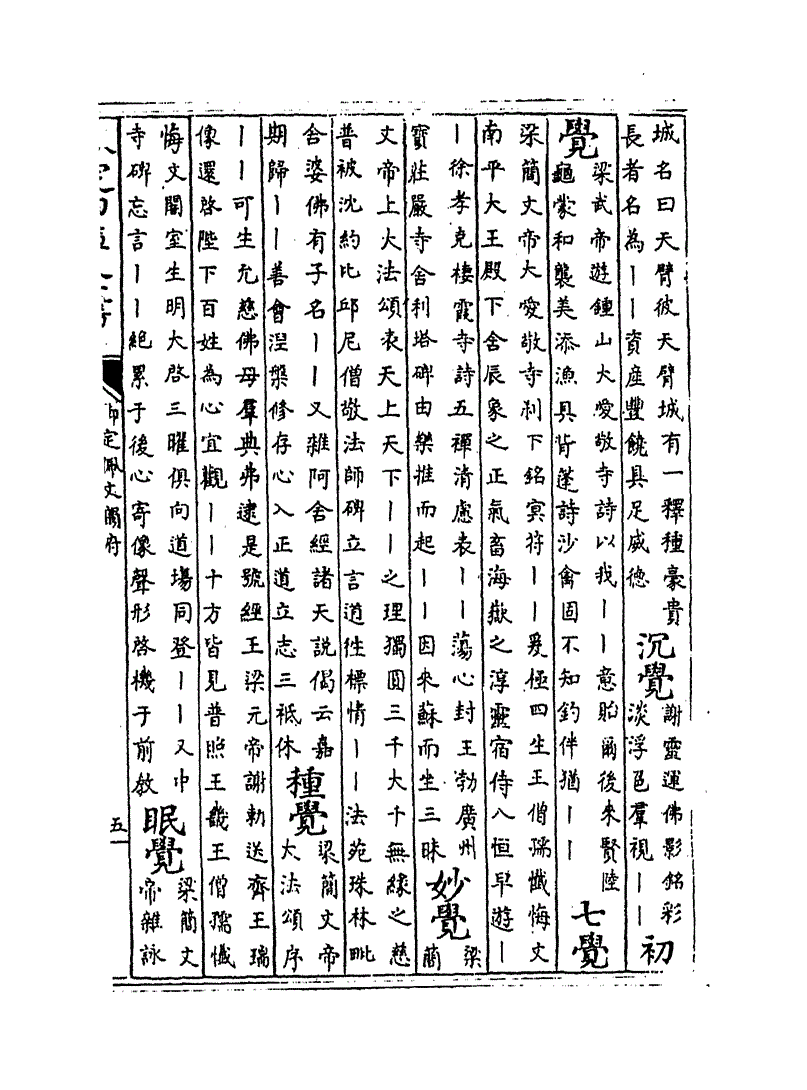 城名曰天臂彼天臂城有一釋種豪貴
長者名為丨丨資産豐饒具足威徳
沉覺
謝靈運佛影銘彩
淡浮色羣視丨丨
初
覺
梁武帝遊鍾山大愛敬寺詩以我丨丨意貽爾後來賢陸
龜蒙和襲美添漁具背蓬詩沙禽固不知釣伴猶丨丨
七覺
梁簡文帝大愛敬寺刹下銘冥符丨丨爰極四生王僧孺懺悔文
南平大王殿下舍辰象之正氣畜海嶽之淳靈宿侍八恒早遊丨
丨徐孝克棲霞寺詩五禪清慮表丨丨蕩心封王勃廣州
寳莊嚴寺舍利塔碑由樂推而起丨丨因來蘇而坐三昧
妙覺
梁
簡
文帝上大法頌表天上天下丨丨之理獨圓三千大千無緣之慈
普被沈約比邱尼僧敬法師碑立言道徃標情丨丨法苑珠林毗
舍婆佛有子名丨丨又雜阿含經諸天説偈云嘉
期歸丨丨善會湼槃修存心入正道立志三祇休
種覺
梁簡文帝
大法頌序
丨丨可生允慈佛母羣典弗逮是號經王梁元帝謝勅送齊王瑞
像還啓陛下百姓為心宜觀丨丨十方皆見普照王畿王僧孺懺
悔文闇室生明大啓三曜俱向道場同登丨丨又中
寺碑忘言丨丨絶累于後心寄像聲形啓機于前敎
眠覺
梁簡文
帝雜詠
御定佩文韻府
五